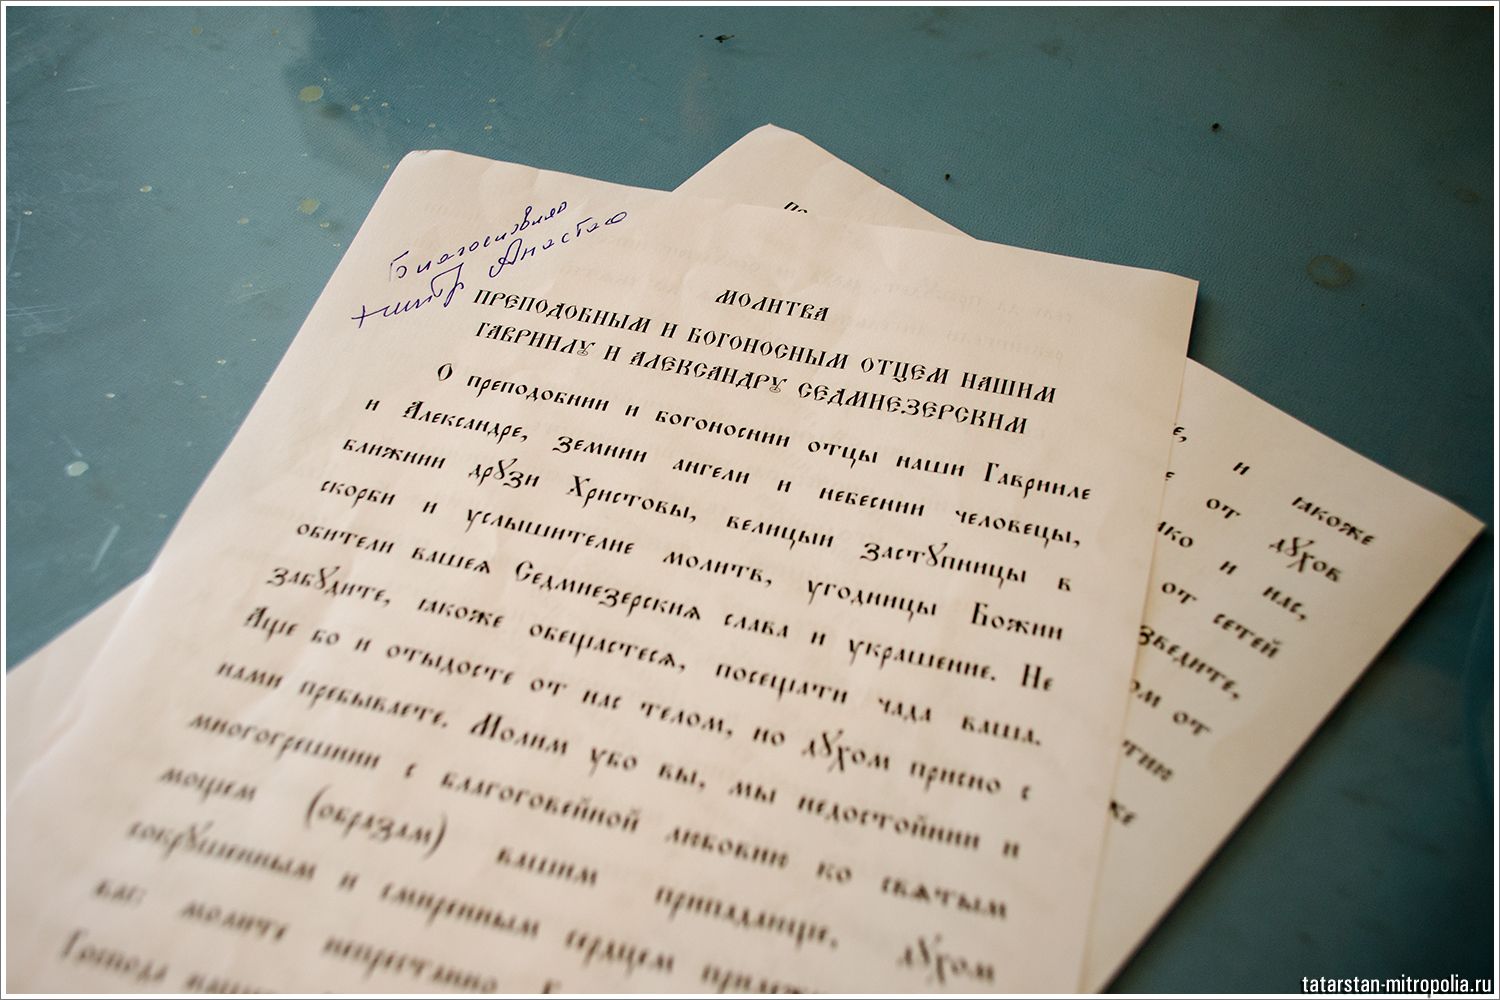 Благословляю
+митр Анастас
МОЛИТВА
ПРЕПОДОБНЫМ И БОГОНОСНЫМ ОТЦЕМ НАШИМ
ГАВРИИЛУ И АЛЕКСАНДРУ СЕДМИЕЗЕРСКИМ
О преподобнии и богоноснии отцы наши Гаврииле
и Александре, земнии ангели и небеснии человецы,
ближнии друзи Христовы, велицыи заступницы в
скорби и услышителие молитв, угодницы Божии
обители вашея Седмиезерския слава и украшение. Не
забудите, якоже обещастеся, посещати чада ваша.
Аще бо и отыдосте от нас телом, но духом присно с
нами пребываете. Молим убо вы, мы недостойнии и
многогрешнии с благоговейной любовию ко святым
мощем (образам) вашим припадающе, духом
сокрушенным и смиренным сердцем прилеж
вас: молите непрестанно
Господа наш
е, и якоже
е от духов
яко и нас,
от сетей
зведите,
ом от
тии
же
tatarstan-mitropolia.ru